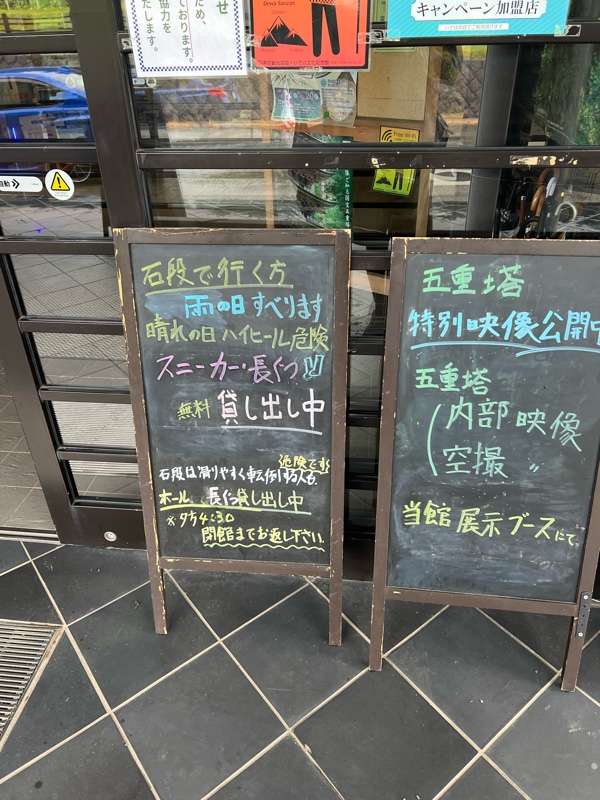 せ
ため、
しております。
協力を
たします。
Dewa Sanzan
キャンペーン加盟店
Free Wi-Fi
自動
石段で行く方
雨の日 すべります
晴れの日 ハイヒール危険
スニーカー・長ぐつ
無料 貸し出し中
危険です!
石段は滑りやすく転倒する人も
ポール 長ぐつ貸し出し中
※夕方4:30
閉館までお返し下さい。
五重塔
特別映像公開中
五重塔
内部映像
空撮 〃
当館展示ブースにて